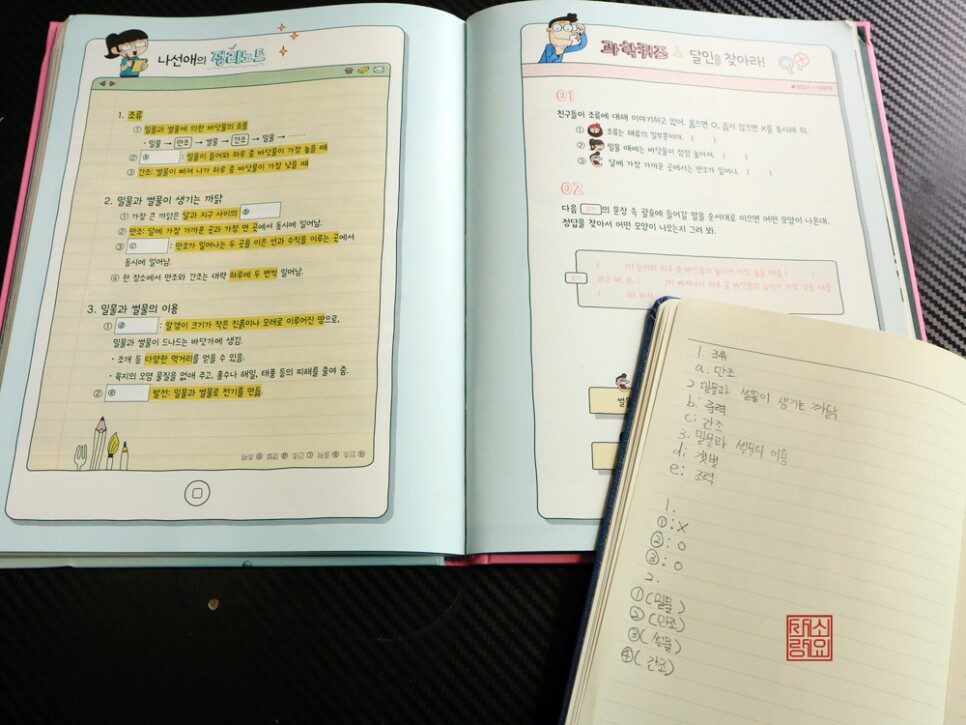 나선애의 정리노트
1. 조류
① 밀물과 썰물에 의한 바닷물의 흐름
· 밀물 → 만조 → 썰물 → 간조 → 밀물 → ……
② ⓐ : 밀물이 들어와 하루 중 바닷물이 가장 높을 때
③ 간조: 썰물이 빠져 나가 하루 중 바닷물이 가장 낮을 때
2. 밀물과 썰물이 생기는 까닭
① 가장 큰 까닭은 달과 지구 사이의 ⓑ
② 만조: 달에 가장 가까운 곳과 가장 먼 곳에서 동시에 일어남.
③ ⓒ : 만조가 일어나는 두 곳을 이은 선과 수직을 이루는 곳에서
동시에 일어남.
④ 한 장소에서 만조와 간조는 대략 하루에 두 번씩 일어남.
3. 밀물과 썰물의 이용
① ⓓ : 알갱이 크기가 작은 진흙이나 모래로 이루어진 땅으로,
밀물과 썰물이 드나드는 바닷가에 생김.
· 조개 등 다양한 먹거리를 얻을 수 있음.
· 육지의 오염 물질을 없애 주고, 홍수나 해일, 태풍 등의 피해를 줄여 줌.
② ⓔ 발전: 밀물과 썰물로 전기를 만듦.
ⓐ 만조 ⓑ 중력 ⓒ 간조 ⓓ 갯벌 ⓔ 조력
과학퀴즈 달인을 찾아라!
●정답은 119쪽에
01
친구들이 조류에 대해 이야기하고 있어. 옳으면 O, 옳지 않으면 X를 표시해 줘.
① 조류는 해류의 일부분이야. ( )
② 밀물 때에는 바닷물이 점점 높아져. ( )
③ 달에 가장 가까운 곳에서는 만조가 일어나. ( )
02
다음 보기의 문장 속 괄호에 들어갈 말을 순서대로 이으면 어떤 모양이 나온대.
정답을 찾아서 어떤 모양이 나오는지 그려 봐.
보기
( )이 들어와 하루 중 바닷물의 높이가 가장 높을 때를 ( )
라고 해. 또, ( )이 빠져나가 하루 중 바닷물의 높이가 가장 낮을 때를
( )라 하지.
썰물
1. 조류
a: 만조
2 밀물과 썰물이 생기는 까닭
b: 중력
c: 간조
3. 밀물과 썰물의 이용
d: 갯벌
e: 조력
1.
①: X
②: O
③: O
2.
①(밀물)
②(만조)
③(썰물)
④(간조)